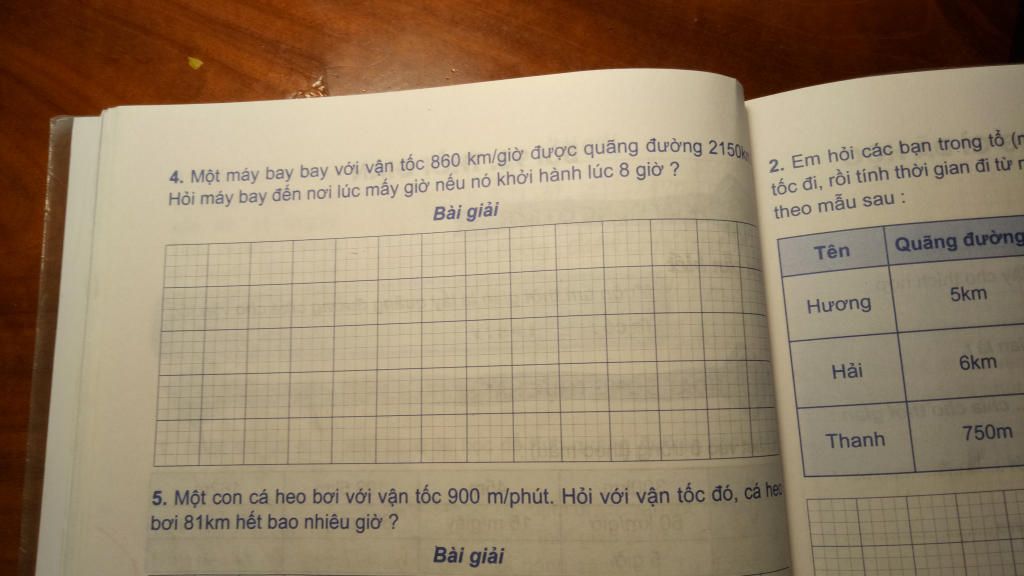 4. Một máy bay bay với vận tốc 860 km/giờ được quãng đường 2150km
Hỏi máy bay đến nơi lúc mấy giờ nếu nó khởi hành lúc 8 giờ ?
Bài giải
5. Một con cá heo bơi với vận tốc 900 m/phút. Hỏi với vận tốc đó, cá heo
bơi 81km hết bao nhiêu giờ ?
Bài giải
2. Em hỏi các bạn trong tổ
tốc đi, rồi tính thời gian đi từ
theo mẫu sau :
Tên Quãng đường
Hương 5km
Hải 6km
Thanh 750m